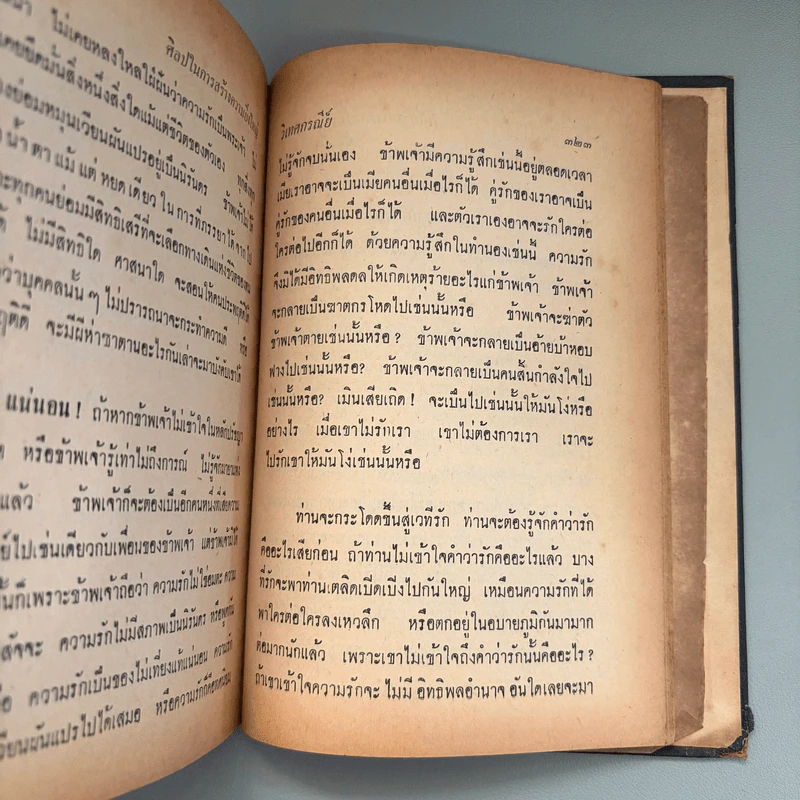 ศิลปในการสร้างความยิ่งใหญ่
ไม่เคยหลงใหลใฝ่ฝันว่าความรักเป็นพระเจ้า
เคยยึดมั่นสิ่งหนึ่งสิ่งใดแม้แต่ชีวิตของตัวเอง
ย่อมหมุนเวียนผันแปรอยู่เป็นนิรันดร ข้าพเจ้าไม่ได้
น้ำตาแม้แต่หยดเดียวในการที่ภรรยาได้จากไป
ทุกคนย่อมมีสิทธิเสรีที่จะเลือกทางเดินแห่งชีวิตของตน
ไม่มีสิทธิใด ศาสนาใด จะสอนให้คนประพฤติดีได้
ว่าบุคคลนั้น ๆ ไม่ปรารถนาจะกระทำความดี หรือ
จะมีผีห่าซาตานอะไรกันเล่าจะมาบังคับเราได้
แน่นอน! ถ้าหากข้าพเจ้าไม่เข้าใจในหลักปรัชญา
หรือข้าพเจ้ารู้เท่าไม่ถึงการณ์ ไม่รู้จักมายาแห่ง
แล้ว ข้าพเจ้าก็จะต้องเป็นอีกคนหนึ่งที่เสียความ
ไปเช่นเดียวกับเพื่อนของข้าพเจ้า แต่ข้าพเจ้ามิได้
ก็เพราะข้าพเจ้าถือว่า ความรักไม่ใช่อมตะ ความ
สัจจะ ความรักไม่มีสภาพเป็นนิรันดร
ความรักเป็นของไม่เที่ยงแท้แน่นอน ความรัก
เวียนผันแปรไปได้เสมอ
วิเทศกรณีย์
๓๒๓
ไม่รู้จักจบนั่นเอง ข้าพเจ้ามีความรู้สึกเช่นนี้อยู่ตลอดเวลา
เมียเราอาจจะเป็นเมียคนอื่นเมื่อไรก็ได้ คู่รักของเราอาจเป็น
คู่รักของคนอื่นเมื่อไรก็ได้ และตัวเราเองอาจจะรักใคร่ต่อ
ใครต่อไปอีกก็ได้ ด้วยความรู้สึกในทำนองเช่นนี้ ความรัก
จึงมิได้มีอิทธิพลดลให้เกิดเหตุร้ายอะไรแก่ข้าพเจ้า ข้าพเจ้า
จะกลายเป็นฆาตกรโหดไปเช่นนั้นหรือ ข้าพเจ้าจะฆ่าตัว
ข้าพเจ้าตายเช่นนั้นหรือ? ข้าพเจ้าจะกลายเป็นอ้ายบ้าหอบ
ฟางไปเช่นนั้นหรือ? ข้าพเจ้าจะกลายเป็นคนสิ้นกำลังใจไป
เช่นนั้นหรือ? เมินเสียเถิด! จะเป็นไปเช่นนั้นให้มันโง่หรือ
อย่างไร เมื่อเขาไม่รักเรา เขาไม่ต้องการเรา เราจะ
ไปรักเขาให้มันโง่เช่นนั้นหรือ
ท่านจะกระโดดขึ้นสู่เวทีรัก ท่านจะต้องรู้จักคำว่ารัก
คืออะไรเสียก่อน ถ้าท่านไม่เข้าใจคำว่ารักคืออะไรแล้ว บาง
ทีรักจะพาท่านเตลิดเปิดเปิงไปกันใหญ่ เหมือนความรักที่ได้
พาใครต่อใครลงเหวลึก หรือตกอยู่ในอบายภูมิกันมามาก
ต่อมากนักแล้ว เพราะเขาไม่เข้าใจถึงคำว่ารักนั้นคืออะไร?
ถ้าเขาเข้าใจความรักจะไม่มีอิทธิพลอำนาจอันใดเลยจะมา